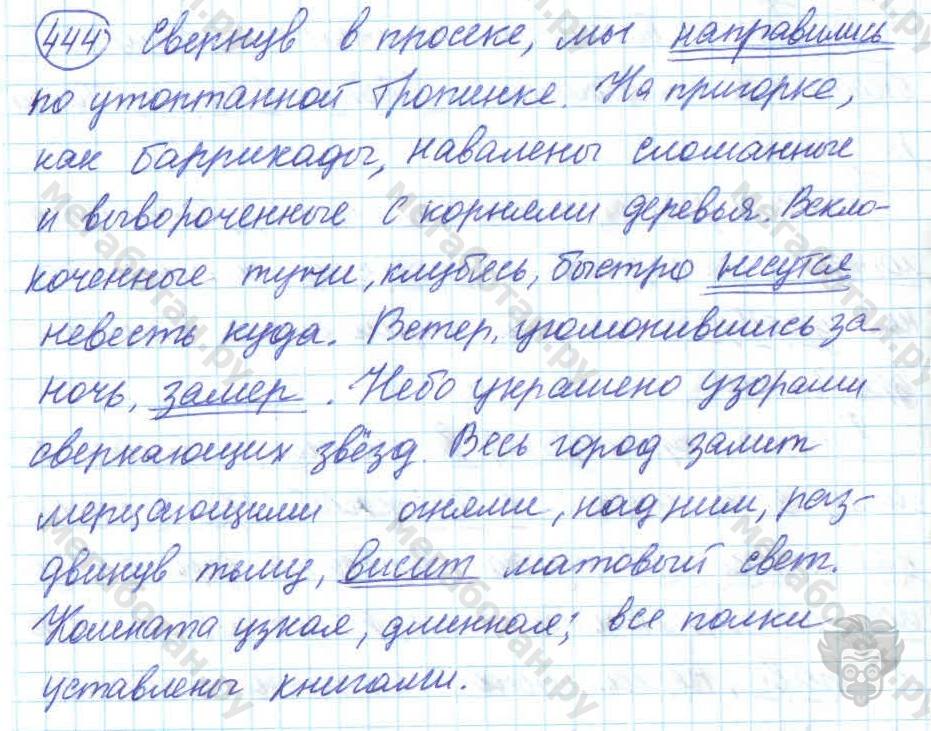 444 Свернув в просеке, мы направились
по утоптанной тропинке. На пригорке,
как баррикады, навалены сломанные
и вывороченные с корнями деревья. Вскло-
коченные тучи, клубясь, быстро несутся
невесть куда. Ветер, угомонившись за
ночь, замер. Небо украшено узорами
сверкающих звёзд. Весь город залит
мерцающими огнями, над ним, раз-
двинув тьму, висит матовый свет.
Комната узкая, длинная; все полки
уставлены книгами.
мегаботан.ру